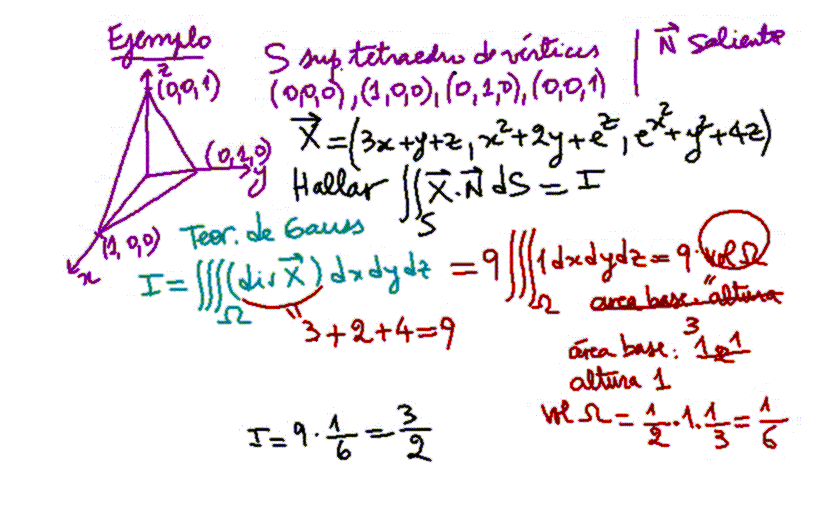 Ejemplo
S sup. tetraedro de vértices
(0,0,0), (1,0,0), (0,1,0), (0,0,1)
N⃗ saliente
z
(0,0,1)
(0,1,0)
y
(1,0,0)
x
X⃗ = (3x+y+z, x²+2y+e^z, e^x²+y²+4z)
Hallar ∬_S X⃗·N⃗ dS = I
Teor. de Gauss
I = ∭_Ω (div X⃗) dxdydz = 9 ∭_Ω 1 dxdydz = 9· vol Ω
3+2+4=9
area base · altura
3
área base: 1·1
2
altura 1
vol Ω = 1/2 · 1 · 1/3 = 1/6
I = 9 · 1/6 = 3/2